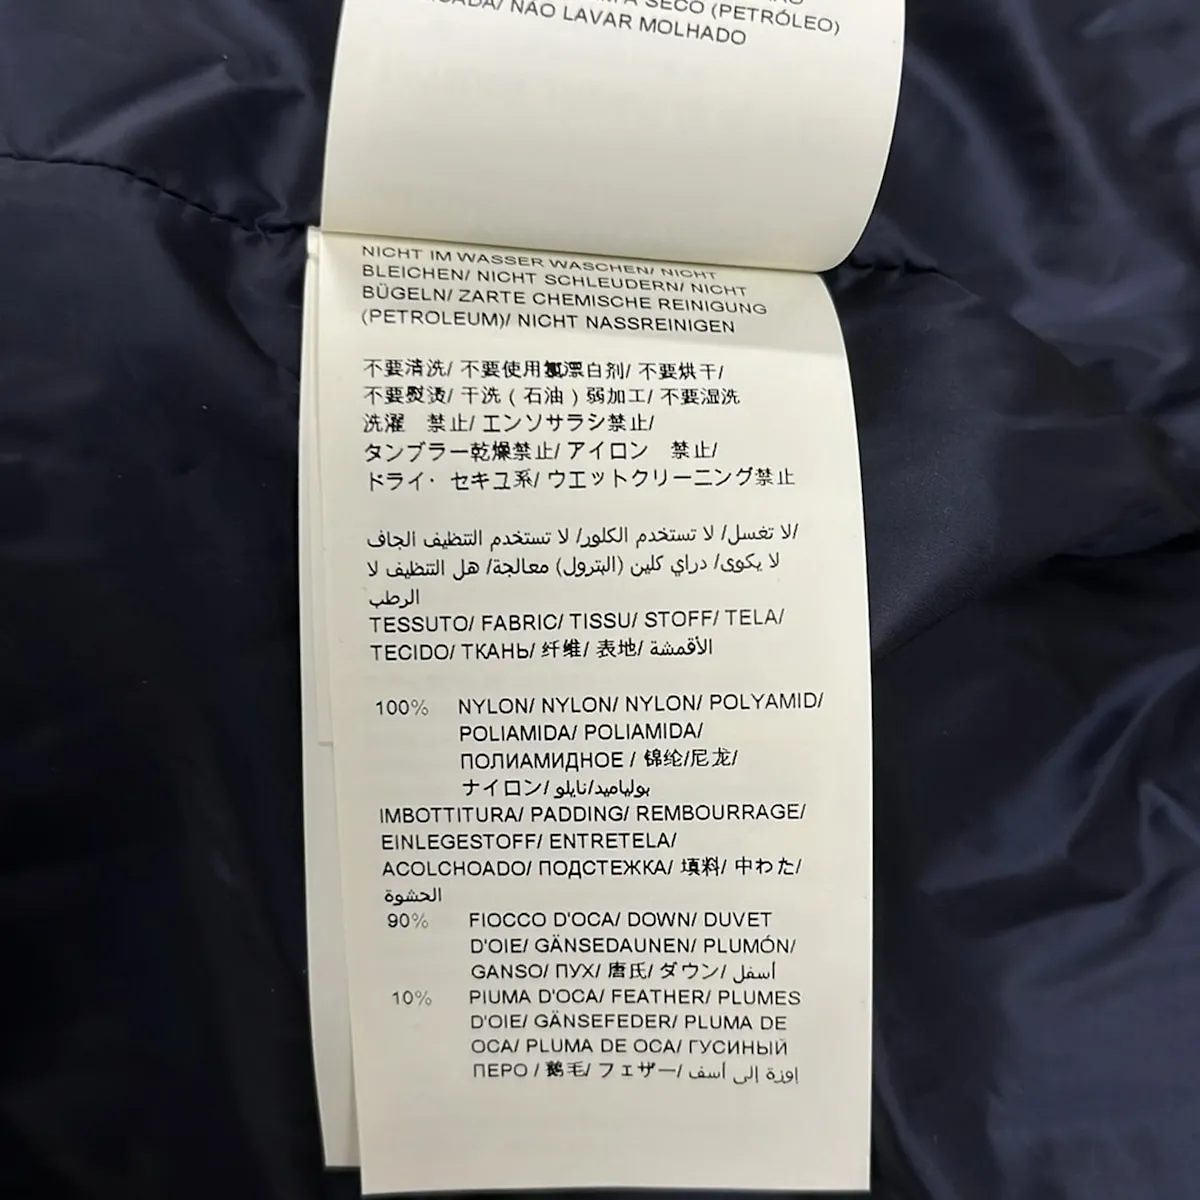 A SECO (PETRÓLEO)
NÃO LAVAR MOLHADO
NICHT IM WASSER WASCHEN/ NICHT
BLEICHEN/ NICHT SCHLEUDERN/ NICHT
BÜGELN/ ZARTE CHEMISCHE REINIGUNG
(PETROLEUM)/ NICHT NASSREINIGEN
不要清洗/ 不要使用氯漂白剂/ 不要烘干/
不要熨烫/ 干洗 ( 石油 ) 弱加工/ 不要湿洗
洗濯　禁止/ エンソサラシ禁止/
タンブラー乾燥禁止/ アイロン　禁止/
ドライ· セキユ系/ ウエットクリーニング禁止
لا تغسل/ لا تستخدم الكلور/ لا تستخدم التنظيف الجاف/
لا يكوى/ دراي كلين (البترول) معالجة/ هل التنظيف لا
الرطب
TESSUTO/ FABRIC/ TISSU/ STOFF/ TELA/
TECIDO/ ТКАНЬ/ 纤维/ 表地/ الأقمشة
100% NYLON/ NYLON/ NYLON/ POLYAMID/
POLIAMIDA/ POLIAMIDA/
ПОЛИАМИДНОЕ / 锦纶/尼龙/
ナイロン/ بولياميد/نايلو
IMBOTTITURA/ PADDING/ REMBOURRAGE/
EINLEGESTOFF/ ENTRETELA/
ACOLCHOADO/ ПОДСТЕЖКА/ 填料/ 中わた/
الحشوة
90% FIOCCO D'OCA/ DOWN/ DUVET
D'OIE/ GÄNSEDAUNEN/ PLUMÓN/
GANSO/ ПУХ/ 唐氏/ ダウン/ أسفل
10% PIUMA D'OCA/ FEATHER/ PLUMES
D'OIE/ GÄNSEFEDER/ PLUMA DE
OCA/ PLUMA DE OCA/ ГУСИНЫЙ
ПЕРО / 鹅毛/ フェザー/ إوزة إلى أسف